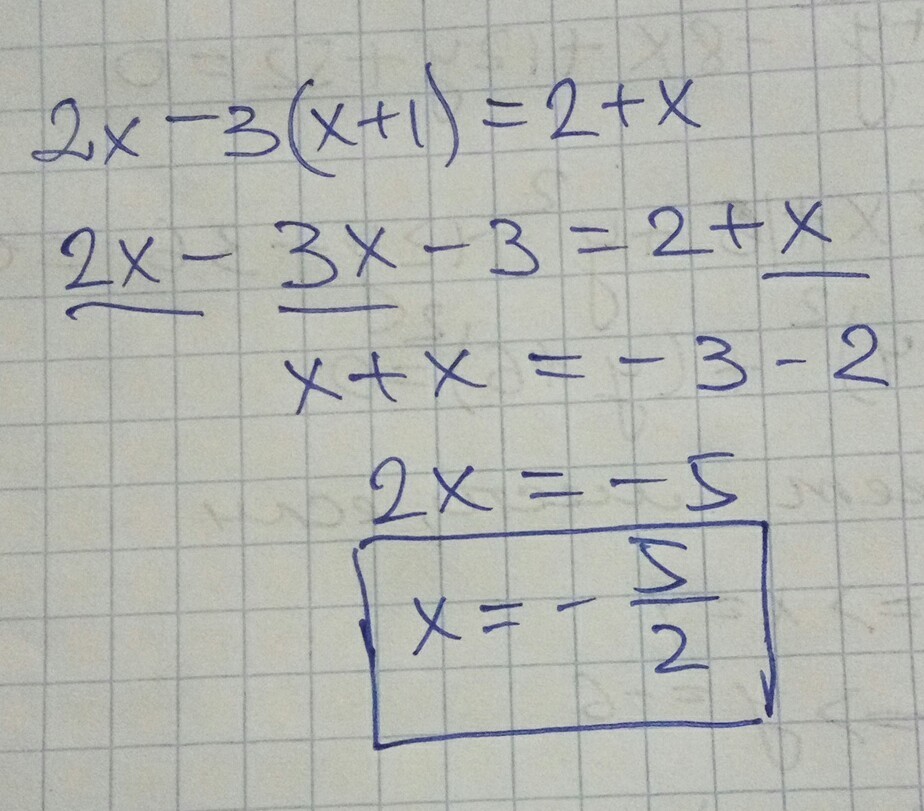 2x - 3(x+1) = 2 + x
2x - 3x - 3 = 2 + x
x + x = - 3 - 2
2x = - 5
x = - 5/2